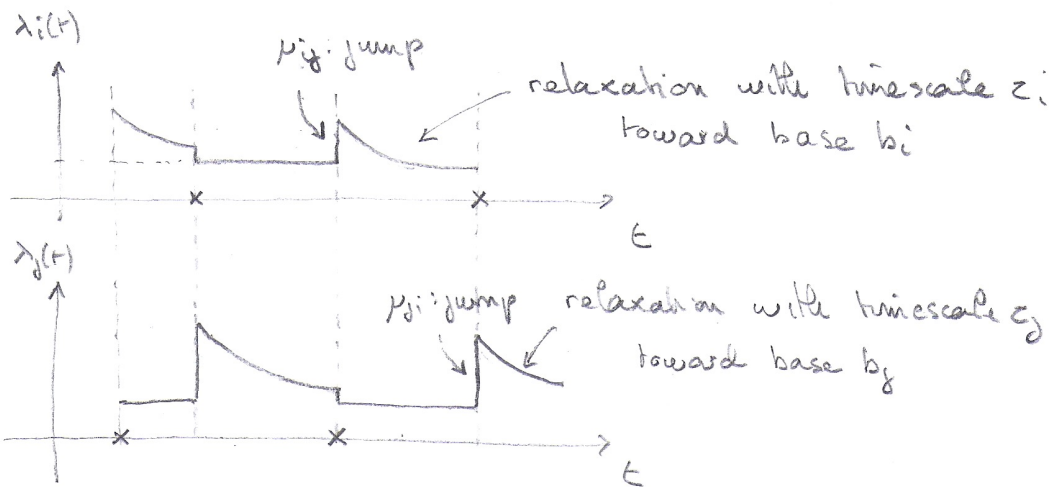 λi(t)
μij : jump
relaxation with timescale τi
toward base bi
t
λj(t)
μji : jump
relaxation with timescale τj
toward base bj
t